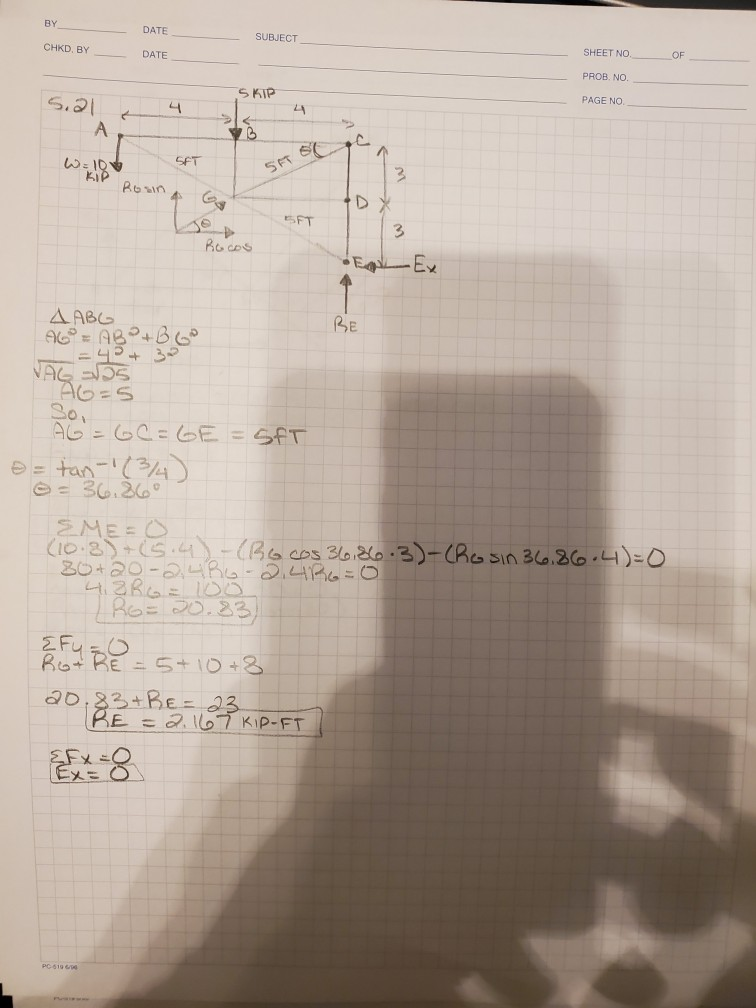 BY DATE SUBJECT
CHKD. BY DATE SHEET NO. OF
PROB. NO.
PAGE NO.
5.21
5 KIP
4 4
A B C
W=10 KIP
5FT 5FT θ
3
RG sin G D
θ 5FT 3
RG cos
E Ex
RE
△ ABG
AG² = AB² + BG²
= 4² + 3²
√AG = √25
AG = 5
So,
AG = GC = GE = 5FT
θ = tan⁻¹(3/4)
θ = 36.86°
ΣME = 0
(10·8)+(5·4) - (RG cos 36.86·3) - (RG sin 36.86·4) = 0
80+20-2.4RG - 2.4RG = 0
4.8RG = 100
RG = 20.83
ΣFy = 0
RG + RE = 5+10+8
20.83+RE = 23
RE = 2.167 KIP-FT
ΣFx = 0
Ex = 0